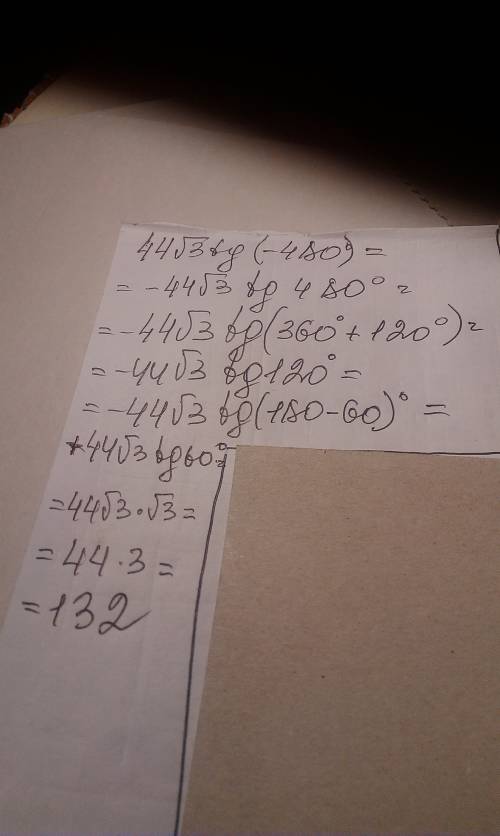 44√3 tg (-480°) =
= -44√3 tg 480° =
= -44√3 tg(360° + 120°) =
= -44√3 tg 120° =
= -44√3 tg(180-60)° =
+44√3 tg 60° =
= 44√3 · √3 =
= 44 · 3 =
= 132